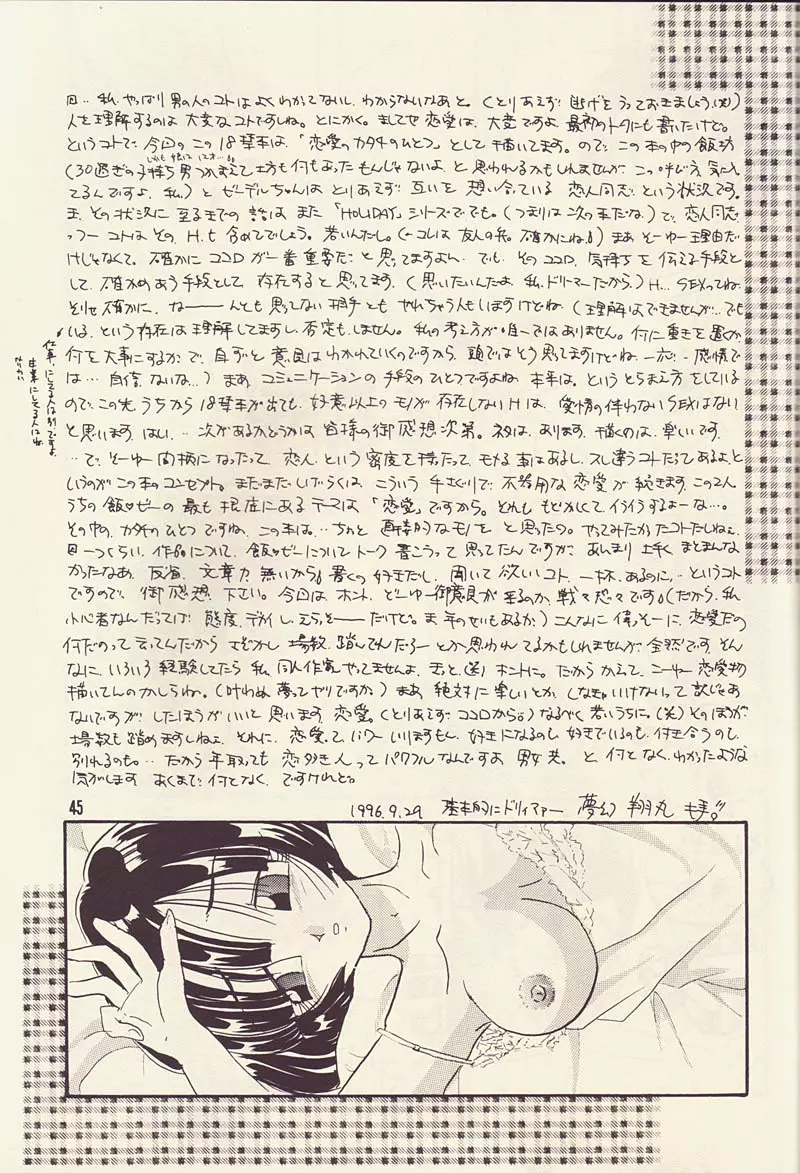 回‥私、やっぱり男の人のコトはよくわかってないし、わからないなあと。(とりあえず逃げをうっておきましょう、(笑))
人を理解するのは大変なコトですしね。とにかく。ましてや恋愛は、大変ですよ、最初のトークにも書いたけど。
というコトで、今回のこの18禁本は、「恋愛のカタチのひとつ」として描いてます。ので、この本の中の飯坊
(30過ぎの子持ち男つかまえて坊も何もあったもんじゃないよ、と思われるかもしれませんが、この呼び方、気に入っ
てるんですよ、私)とビーデルちゃんはとりあえず互いを想い合っている恋人同志、という状況です。
ま、その状況に至るまでの話はまた「HOLIDAY」シリーズででも。(つまりは次の本だな)で、恋人同志
っつーコトはその、Hも含めてでしょう。若いんだし。(←コレは友人の弁。確かにね!)まあそーゆー理由だ
けじゃなくて、確かにココロが一番重要だと思ってますよん‥でも、そのココロ、気持ちを伝える手段と
して、確かめあう手段として存在すると思ってます。(思いたいんだよ、私、ドリーマーだから)H‥SEXってね。
そりゃ確かに、なーーんとも思ってない相手ともやれちゃう人もいますけどね、(理解はできませんが‥でも
いる、という存在は理解してますし、否定もしません。私の考え方が唯一ではありません。何に重きを置くか、
何を大事にするか、で、自ずと意見はわかれていくのですから、頭ではそう思ってますけどね、一応‥感情で
は…自信ないな‥)まあコミュニケーションの手段のひとつですよね、本来は。というとらえ方をしている
ので、この先うちから18禁本が出ても、好意以上のモノが存在しないHは、愛情の伴わないSEXはない
と思います、はい…次があるかどうかは皆様の御感想次第。ネタは、あります、描くのは、楽しいです。
…で、そーゆー間柄になったって恋人という密度を持ったって、モメる事はあるし、スレ違うコトだってあるよ、と
いうのがこの本のコンセプト。まだまだしばらくは、こういう手さぐりで、不器用な恋愛が続きます、この2人
うちの飯♡ビーの最も根底にあるテーマは「恋愛」ですから。とれもも どかしくてイライラするよーな…。
その中の、カタチのひとつですね、この本は…ちょっと
回一つくらい、作品について、飯♡ビーについてトーク書こうって思ってたんですが、あんまり上手くまとまんな
かったなあ、反省。文章力無いから!書くの好きだし、聞いて欲しいコト、一杯、あるのに‥というコト
ですので、御感想、下さい。今回はホント、どーゆー御意見が来るのか、戦々恐々です!(だから、私、
小心者なんだってば、態度、デカイし、えらそーだけど。ま、年のせいもあるか)こんなに偉そーに、恋愛だの
何だのって言ってんだからさぞかし場数、踏んでんだろーとか思われてるかもしれませんが、全然です。そん
なに、いろいろ経験してたら私、同人作家やってませんよ、きっと、(笑)ホントに。だからかえって、こーゆー恋愛物
描いてんのかしらね。(叶わぬ夢ってヤツですか)まあ絶対に楽しいとか、しなきゃいけないって訳じゃあ
ないですが、したほうがいいと思います、恋愛。(とりあえず、ココロから!)なるべく若いうちに。(笑)そのほうが、
場数も踏めますしねぇ、それに、恋愛って、パワーいりますもん、好きになるのも、好きでいるのも、付き合うのも、
別れるのも。‥だから年取っても恋多き人ってパワフルなんですよ、男女共。と、何となく、わかったような
気がします、あくまで、何となく、ですけれど。
仕事にしてる人は別ですよ。
45
1996.9.29 基本的にドリィマァー 夢幻 翔丸